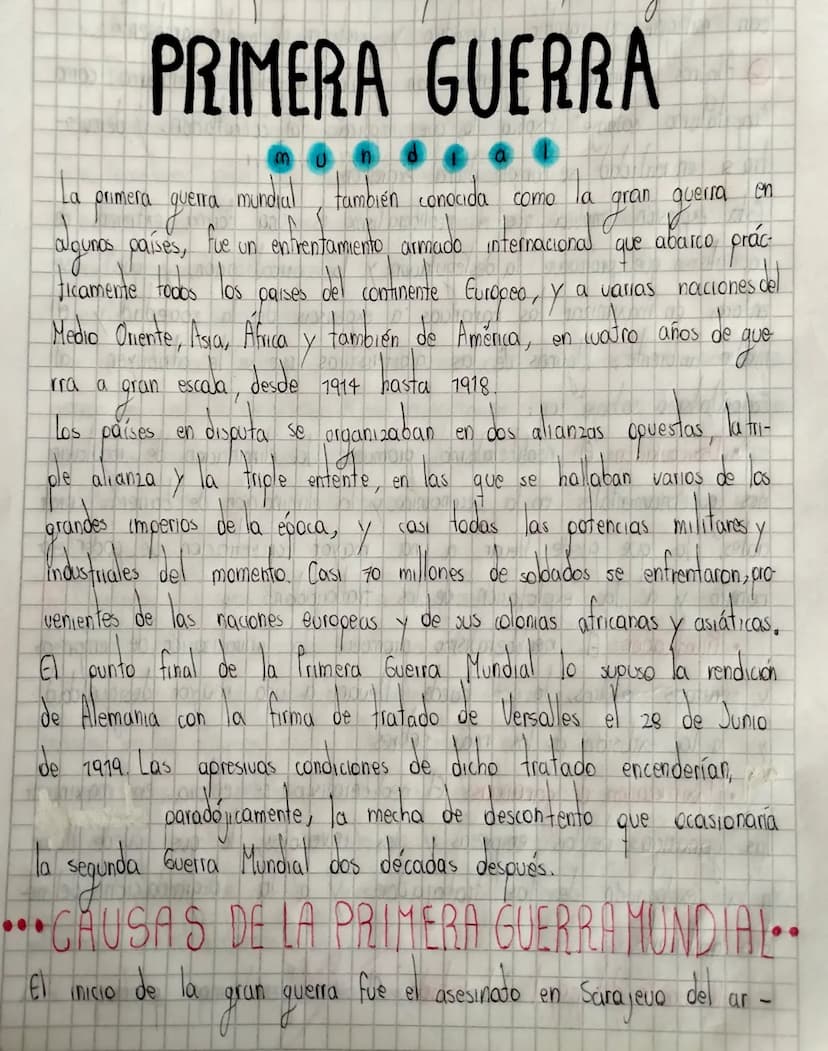 PRIMERA GUERRA
mundial
La primera guerra mundial, también conocida como la gran guerra en
algunos países, fue un enfrentamiento armado internacional que abarco prác-
ticamente todos los países del continente Europeo, y a varias naciones del
Medio Oriente, Asia, África y también de América, en cuatro años de gue
rra a gran escala, desde 1914 hasta 1918.
Los países en disputa se organizaban en dos alianzas opuestas, la tri-
ple alianza y la triple entente, en las que se hallaban varios de los
grandes imperios de la época, y casi todas las potencias militares y
industriales del momento. Casi 70 millones de soldados se enfrentaron, pro-
venientes de las naciones europeas y de sus colonias africanas y asiáticas.
El punto final de la Primera Guerra Mundial lo supuso la rendición
de Alemania con la firma de tratado de Versalles el 28 de Junio
de 1919. Las apresivas condiciones de dicho tratado encenderían,
paradójicamente, la mecha de descontento que ocasionaría
la segunda Guerra Mundial dos décadas después.
•••CAUSAS DE LA PRIMERA GUERRA MUNDIAL••
El inicio de la gran guerra fue el asesinato en Sarajevo del ar-